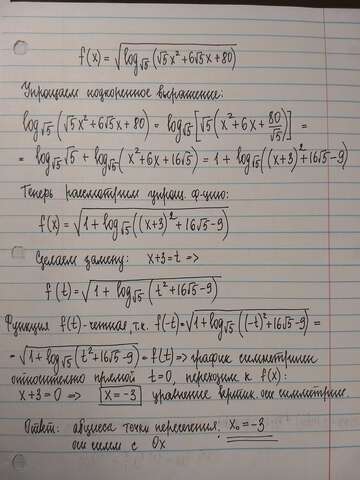 f(x) = √(log_√5 (√5x² + 6√5x + 80))
Упрощаем подкоренное выражение:
log_√5 (√5x² + 6√5x + 80) = log_√5 [√5 (x² + 6x + 80/√5)] =
= log_√5 √5 + log_√5 (x² + 6x + 16√5) = 1 + log_√5 ((x+3)² + 16√5 - 9)
Теперь рассмотрим упрощ. ф-цию:
f(x) = √(1 + log_√5 ((x+3)² + 16√5 - 9))
Сделаем замену: x+3 = t =>
f(t) = √(1 + log_√5 (t² + 16√5 - 9))
Функция f(t) - четная, т.к. f(-t) = √(1 + log_√5 ((-t)² + 16√5 - 9)) =
= √(1 + log_√5 (t² + 16√5 - 9)) = f(t) => график симметричен
относительно прямой t=0, переходим к f(x):
x+3=0 => x=-3 уравнение вертик. оси симметрии.
Ответ: абцисса точки пересечения: x₀ = -3
оси симм. с Ox